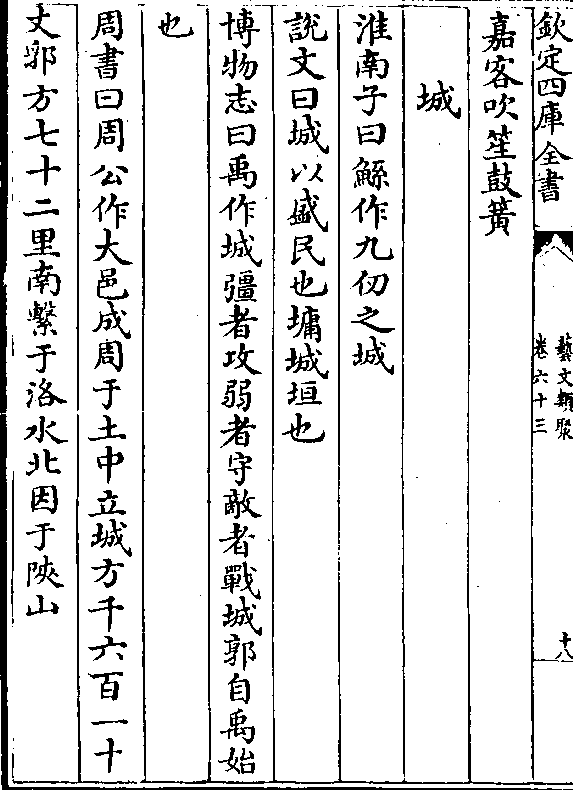 欽定四庫全書
藝文類聚
卷六十三
十八
嘉客吹笙鼓簧
城
淮南子曰鯀作九仞之城
說文曰城以盛民也墉城垣也
博物志曰禹作城彊者攻弱者守敵者戰城郭自禹始
也
周書曰周公作大邑成周于土中立城方千六百一十
丈郛方七十二里南繫于洛水北因于陝山